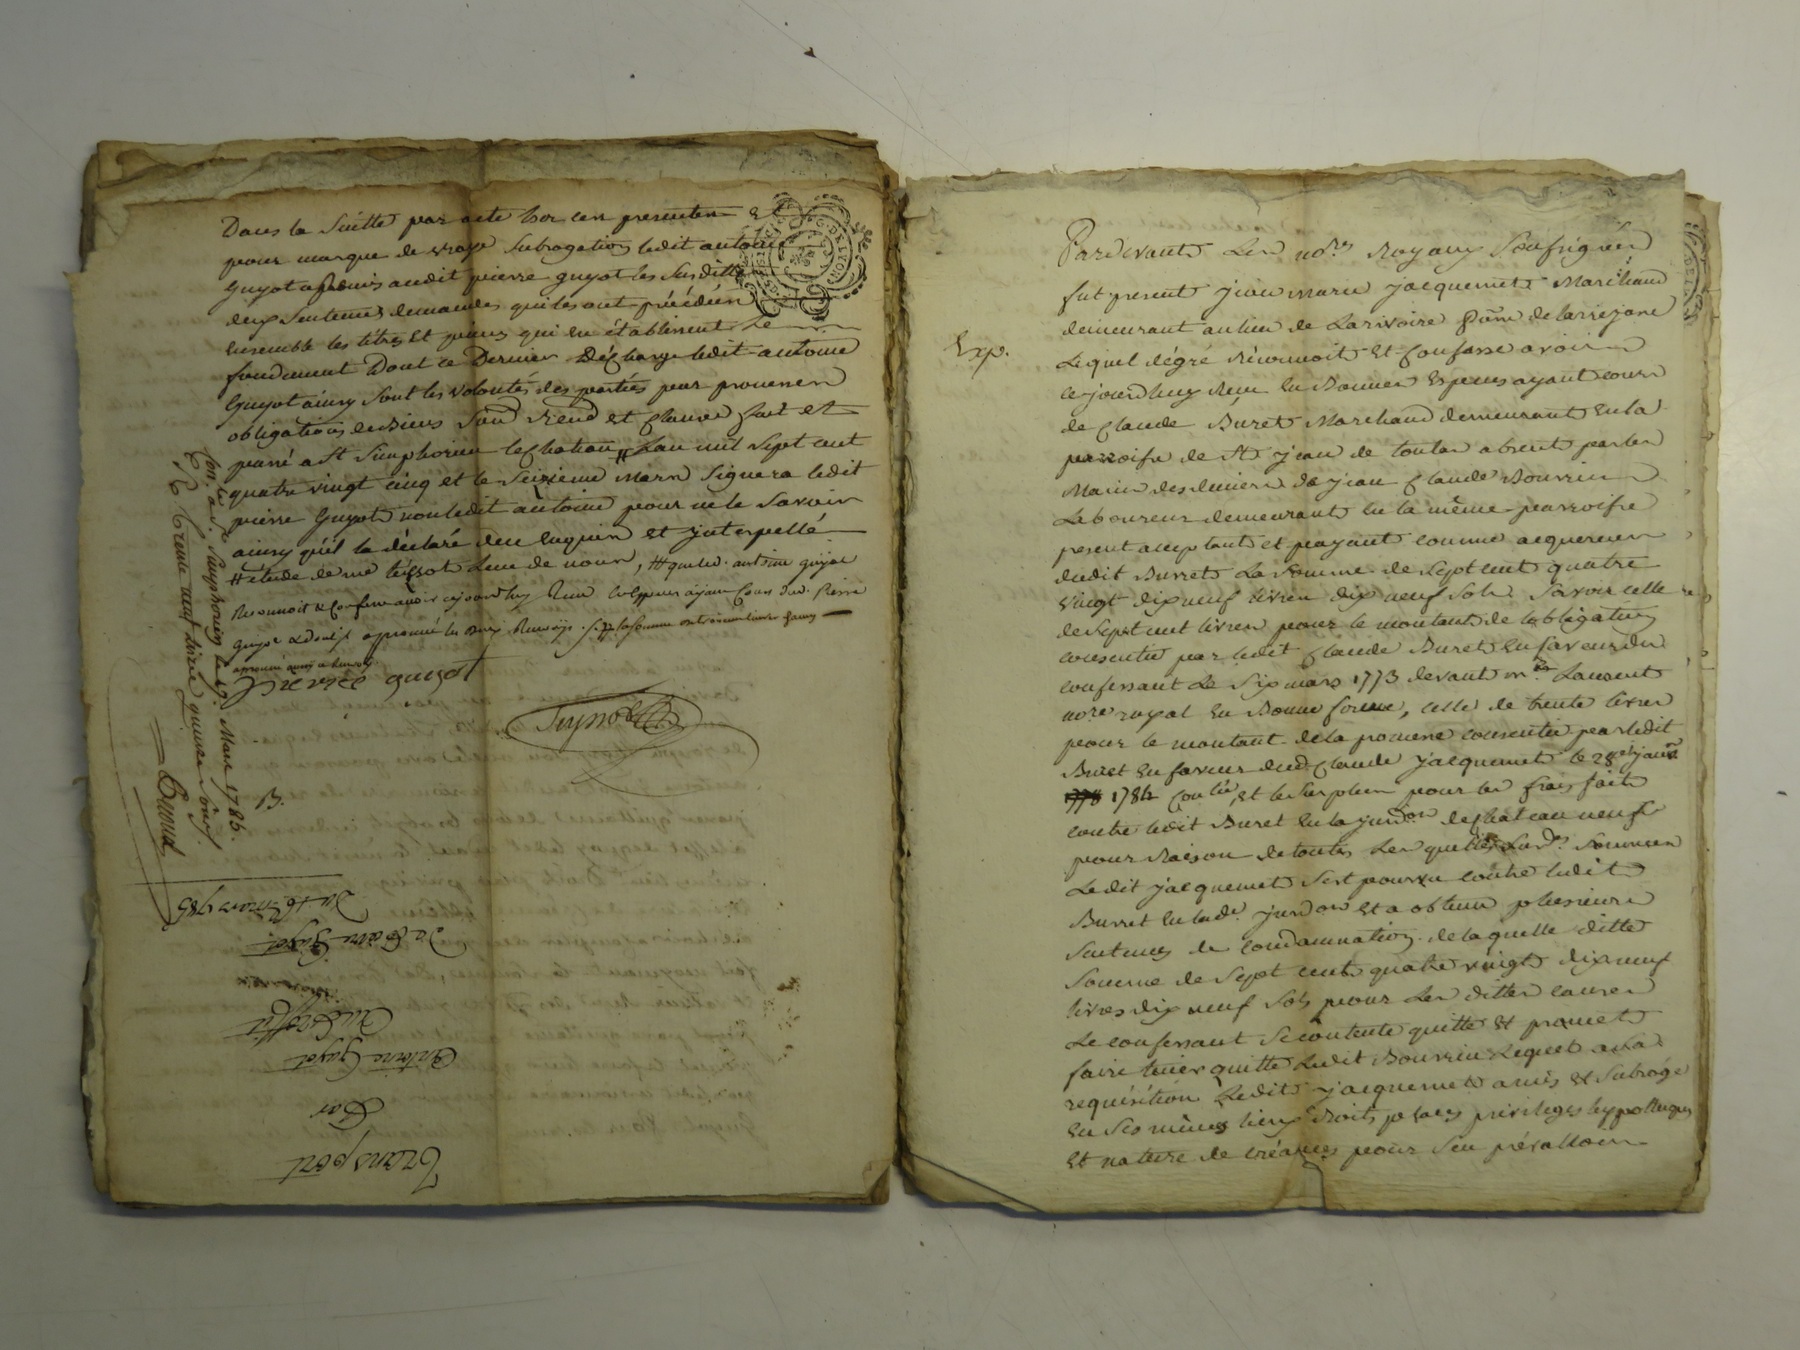 Dans la Suitte par acte hor cen presenten Et
pour marque de vraye Subrogation ledit antoine
Guyot a Remis audit pierre guyot les Susdittes
deux Sentences demandes qui les ont précédéen
Ensemble les titres Et pieces qui en établissent Le
fondement Dont ce Dernier Décharge ledit antoine
Guyot ainsy Sont les volontés des parties par promesses
obligations de Biens Soud Rend et Clause fait et
passé a St Simphorien le Chateau # Lan mil Sept cent
quatre vingt cinq et le Seizieme Mars Signera ledit
pierre Guyot non ledit antoine pour ne le Savoir
ainsy quil la déclaré deu Enquis et Interpellé
# étude de me teyssot Lun de nous, ## que led. antoine guyot
Reconnoit & Confesse avoir ajourdhuy Recu En Especes ayant Cours dud. Pierre
Guyot approuvé les deux Renvoys
approuvé aussy ce Renvoy
Pierre guyot
Con. à St. Simphorien le Mars 1785.
trente neuf livres quinze sous
13.
Transport
Par
Antoine Guyot
Audt Pierre Guyot
Du 16 Mars 1785
Exp.
Pardevant Les nores Royaux Soussignéen
fut present jean marie jacquemet Marchand
demeurant au lieu de Larivoire de larrejasse
Lequel dégré Reconnoit Et Confesse avoir
cejourdhuy Recu En Bonnes Especes ayant cours
de Claude Buret Marchand demeurant En la
parroisse de St jean de toulas absent par les
Mains des deniers de jean Claude Bouvrin
Laboureur demeurant En la même parroisse
present acceptant et payant comme acquereur
dudit Burret La Somme de Sept cent quatre
vingt dix neuf livres dix neuf Sols Savoir celle
de Sept cent livres pour le montant de lobligation
consentie par ledit Claude Buret En faveur du
confessant Le Six mars 1773 devant me Laurent
nore royal En Bonne forme, celle de trente livres
pour le montant de la promesse consentie par ledit
Buret En faveur dud Claude jacquemet le 28e janv.
1784 Conlée, Et le Surplus pour les frais fait
contre ledit Buret En la jurdon de Chateauneuf
pour Raison de toutes Les quelles Sommes
Ledit jacquemet Sest pourvu contre ledit
Burret En lade jurdon Et a obtenu plusieurs
Sentences de Condamnation de laquelle ditte
Somme de Sept cent quatre vingt dix neuf
livres dix neuf Sols pour Les dittes causes
Le confessant Se contente quitte Et promet
faire tenir quitte Ledit Bouvrin Lequel a la
requisition Ledit jacquemet a mis Et Subrogé
En Ses mêmes lieux Droits places privileges hyppotheques
Et nature de créances pour Sen prévalloir